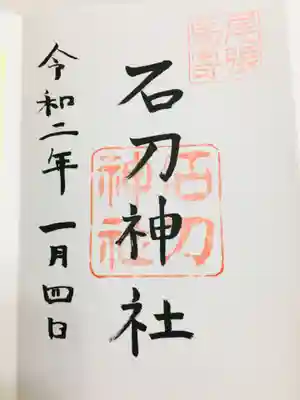 石刀神社
石刀
神社
令和二年 一月四日